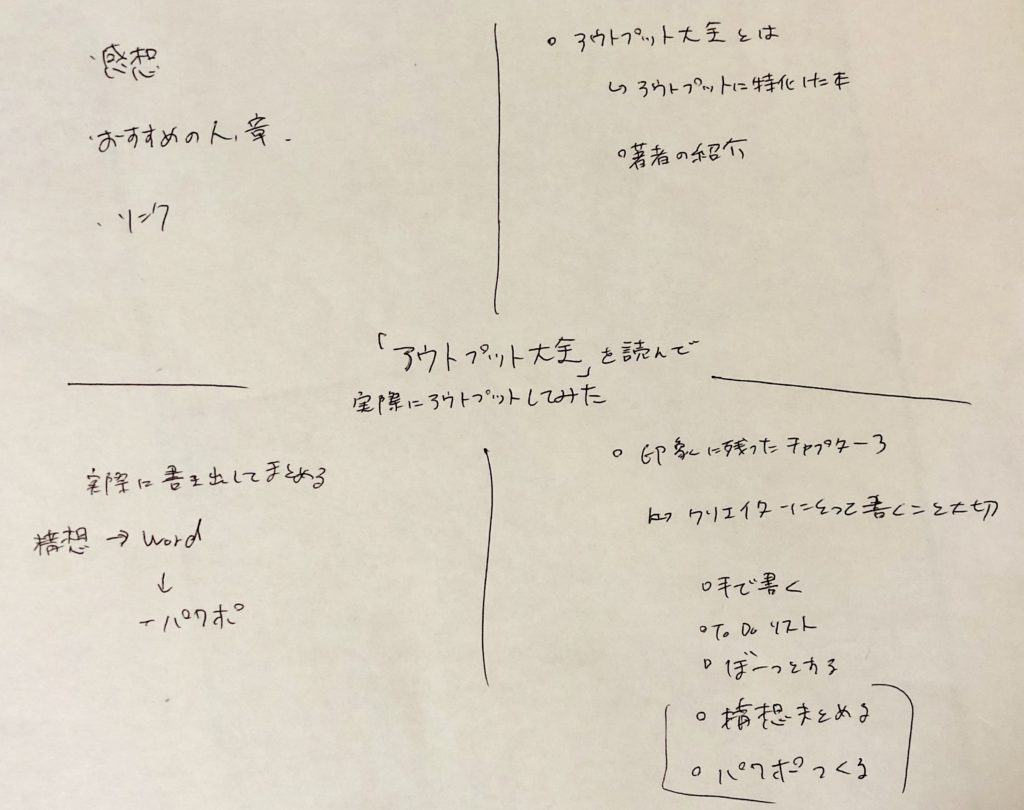 ・感想
・おすすめの人、章.
・リンク
○ アウトプット大全とは
↳ アウトプットに特化した本
○著者の紹介
「アウトプット大全」を読んで
実際にアウトプットしてみた
実際に書き出してまとめる
構想 → word
↓
パワポ
○ 印象に残ったチャプター3
↳ クリエイターにとって書くこと大切
○手で書く
○To Do リスト
○ぼーっとする
○ 構想まとめる
○ パワポつくる